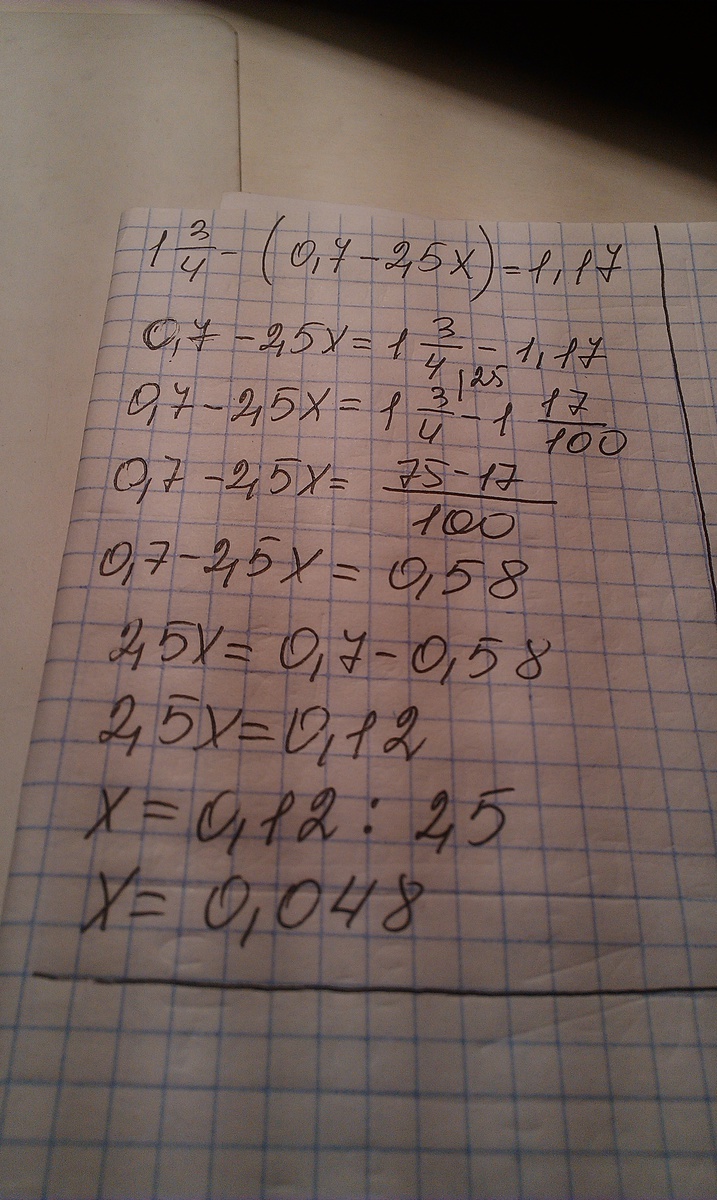 1 3/4 - (0,7 - 2,5x) = 1,17
0,7 - 2,5x = 1 3/4 - 1,17
0,7 - 2,5x = 1 3/4 |25 - 1 17/100
0,7 - 2,5x = 75 - 17/100
0,7 - 2,5x = 0,58
2,5x = 0,7 - 0,58
2,5x = 0,12
x = 0,12 : 2,5
x = 0,048